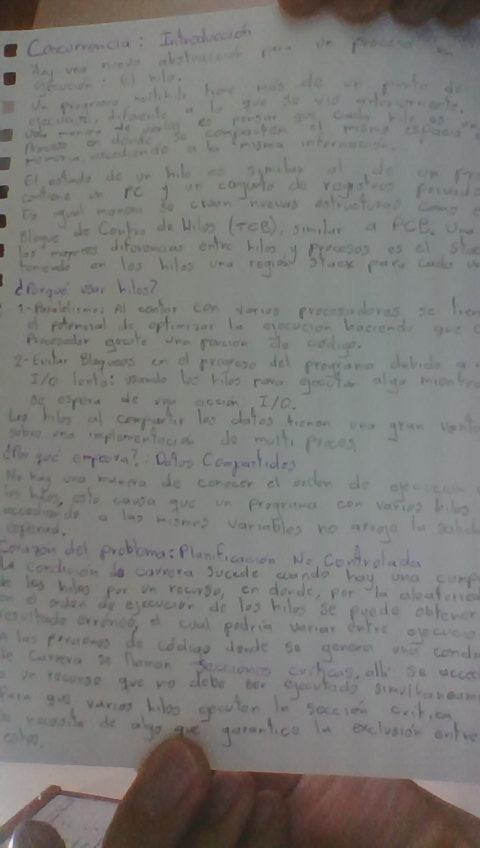 Concurrencia: Introducción
Hay una nueva abstracción para un proceso en
ejecución: El hilo.
Un programa multihilo tiene más de un punto de
ejecución, diferente a lo que se vio anteriormente.
una manera de verlos es pensar que cada hilo es un
Proceso en donde se comparten el mismo espacio
memoria, accediendo a la misma información.
El estado de un hilo es similar al de un
contiene un PC y un conjunto de registros privado
De igual manera se crean nuevas estructuras como
Bloque de Control de Hilos (TCB), similar a PCB. Una
las mayores diferencias entre hilos y procesos es el Stack
teniendo en los hilos una región Stack para cada
¿Porqué usar hilos?
1- Paralelismo: Al contar con varios procesadores, se tiene
el potencial de optimizar la ejecución haciendo que
Procesador ejecute una porción de código.
2- Evitar Bloqueos en el progreso del programa debido a
I/O lento: usando los hilos para ejecutar algo mientras
se espera de una acción I/O.
Los hilos al compartir los datos tienen una gran ventaja
sobre una implementación de multi proces.
¿Por qué empeora?: Datos Compartidos
No hay una manera de conocer el orden de ejecución
los hilos, esto causa que un programa con varios hilos
accediendo a las mismas variables no arroje la salida
esperada.
Corazón del problema: Planificación No Controlada
La condición de carrera sucede cuando hay una
de los hilos por un recurso, en donde, por la
en el orden de ejecución de los hilos se puede obtener
resultado erróneo, el cual podría variar entre
A las porciones de código donde se genera una
de carrera se llaman secciones críticas, allí se
a un recurso que no debe ser ejecutado
Para que varios hilos ejecuten la sección crítica
se necesita de algo que garantice la exclusión entre
estos.